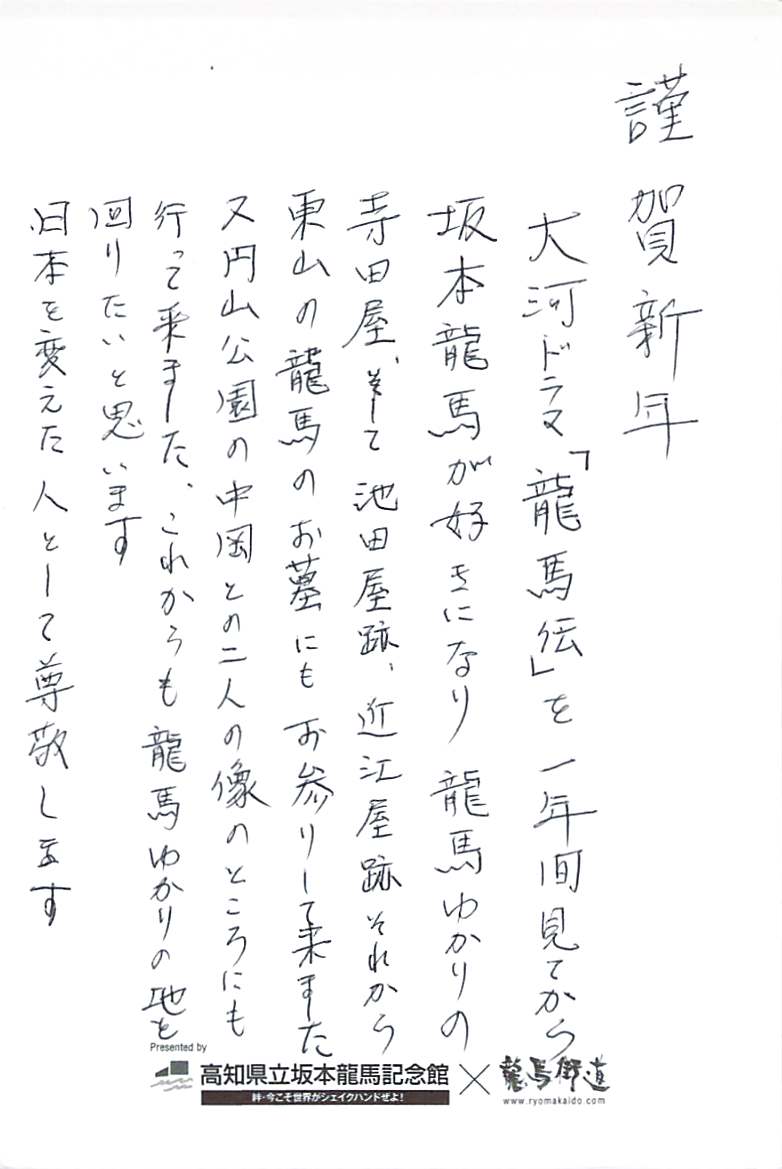 謹賀新年
大河ドラマ「龍馬伝」を一年間見てから
坂本龍馬が好きになり龍馬ゆかりの
寺田屋、そして池田屋跡、近江屋跡それから
東山の龍馬のお墓にもお参りして来ました
又円山公園の中岡との二人の像のところにも
行って来ました、これからも龍馬ゆかりの地を
回りたいと思います
日本を変えた人として尊敬します
Presented by
高知県立坂本龍馬記念館×龍馬街道
絆・今こそ世界がシェイクハンドぜよ!
www.ryomakaido.com